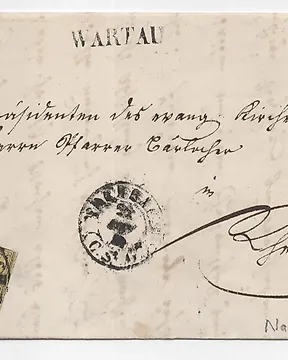 WARTAU
räsidenten des evang. Kirche
errn Pfarrer Bärlocher
in
Rh
Na